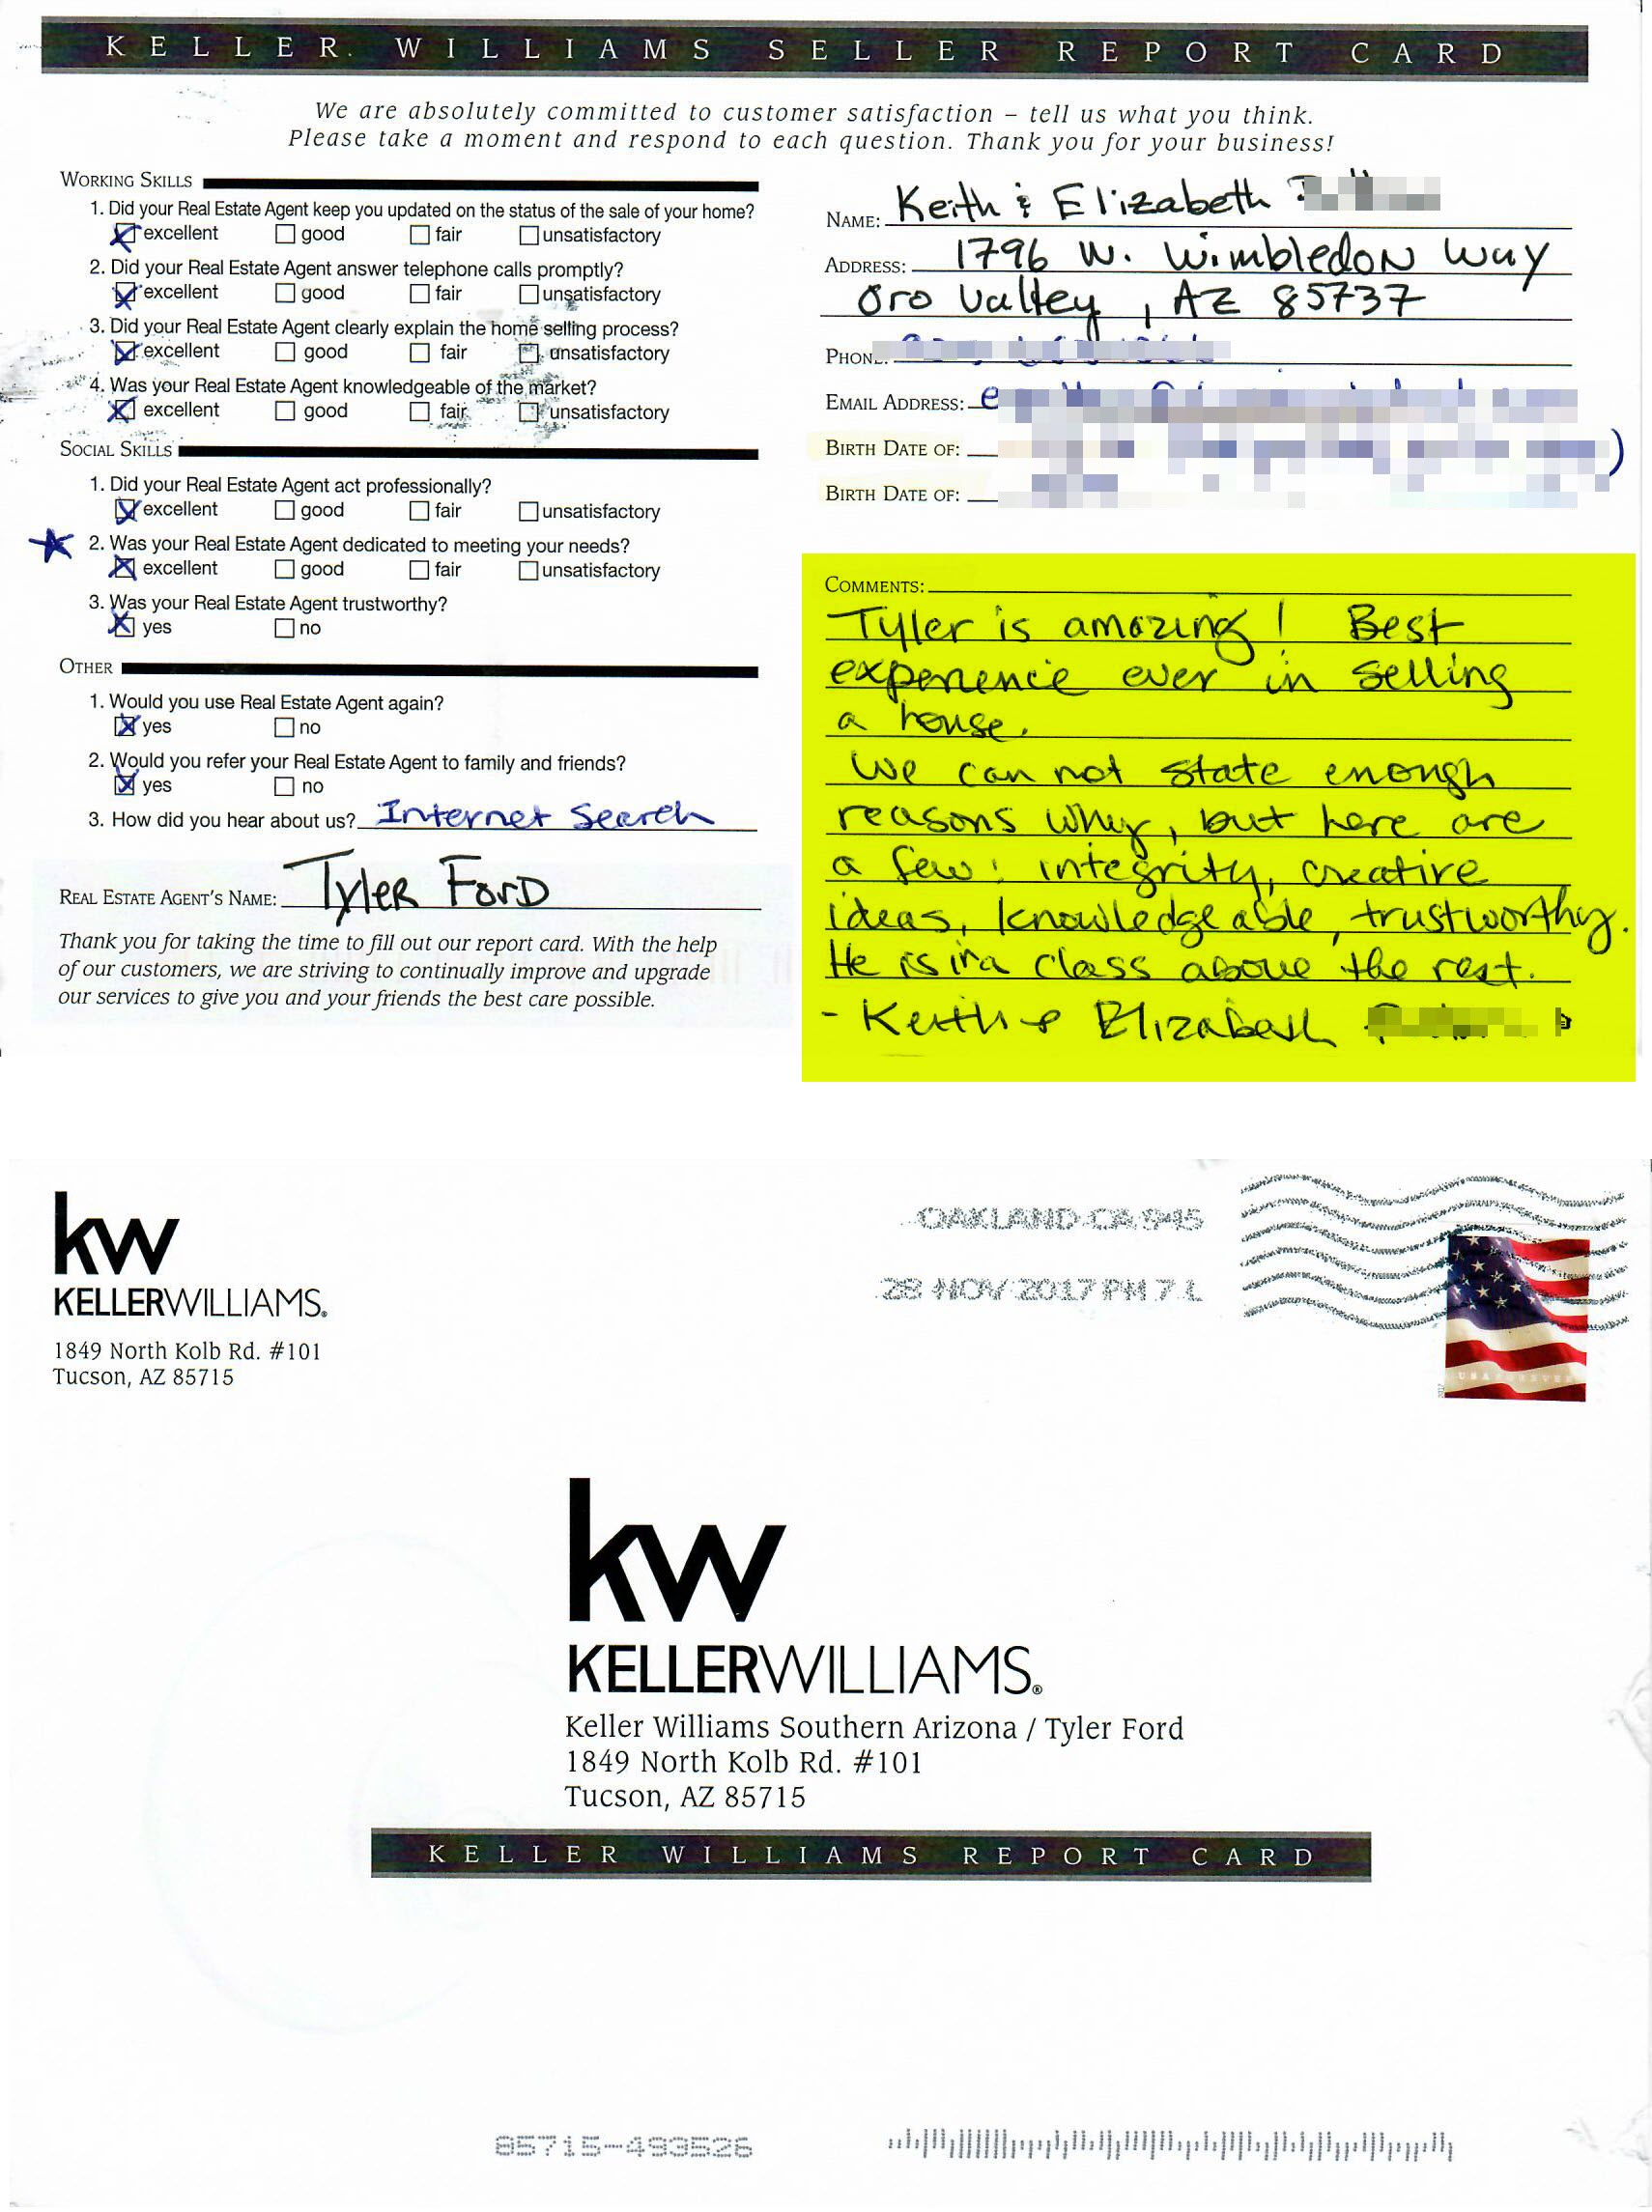 KELLER WILLIAMS SELLER REPORT CARD
We are absolutely committed to customer satisfaction – tell us what you think.
Please take a moment and respond to each question. Thank you for your business!
WORKING SKILLS
1. Did your Real Estate Agent keep you updated on the status of the sale of your home?
excellent good fair unsatisfactory
2. Did your Real Estate Agent answer telephone calls promptly?
excellent good fair unsatisfactory
3. Did your Real Estate Agent clearly explain the home selling process?
excellent good fair unsatisfactory
4. Was your Real Estate Agent knowledgeable of the market?
excellent good fair unsatisfactory
SOCIAL SKILLS
1. Did your Real Estate Agent act professionally?
excellent good fair unsatisfactory
2. Was your Real Estate Agent dedicated to meeting your needs?
excellent good fair unsatisfactory
3. Was your Real Estate Agent trustworthy?
yes no
OTHER
1. Would you use Real Estate Agent again?
yes no
2. Would you refer your Real Estate Agent to family and friends?
yes no
3. How did you hear about us? Internet Search
REAL ESTATE AGENT'S NAME: Tyler Ford
Thank you for taking the time to fill out our report card. With the help
of our customers, we are striving to continually improve and upgrade
our services to give you and your friends the best care possible.
NAME: Keith & Elizabeth
ADDRESS: 1796 W. Wimbledon Way
Oro Valley, AZ 85737
PHONE:
EMAIL ADDRESS:
BIRTH DATE OF:
BIRTH DATE OF:
COMMENTS:
Tyler is amazing! Best
experience ever in selling
a house.
We can not state enough
reasons why, but here are
a few: integrity, creative
ideas, knowledgeable, trustworthy.
He is in a class above the rest.
- Keith & Elizabeth
kw
KELLERWILLIAMS.
1849 North Kolb Rd. #101
Tucson, AZ 85715
OAKLAND CA 945
28 NOV 2017 PM 7 L
USA FOREVER
2017
kw
KELLERWILLIAMS.
Keller Williams Southern Arizona / Tyler Ford
1849 North Kolb Rd. #101
Tucson, AZ 85715
KELLER WILLIAMS REPORT CARD
85715-493526